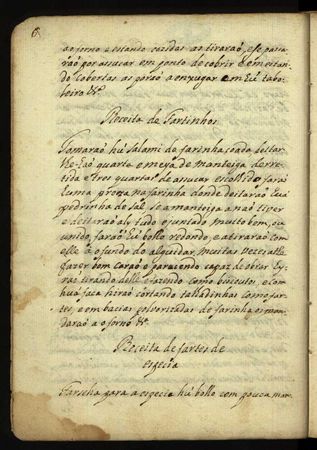 6.
ao forno e estando cozidas as tiraraõ, e se passa
raõ por assucar em ponto de cobrir e em estan
do cobertas as porao a enxugar em hũ tabo
leiro &ª
Receita de Fartinhos
Tomaraõ hũ salamí de farinha coada deitar
lheão quarto e meyo de manteiga derre
tida e tres quartas de asucar escolhido farão
huma preza na farinha donde deitaraõ hũa
pedrinha de sal se a manteiga a naõ tiver
e deitaraõ a ly tudo ajuntado muito bem, ou
unido, faraõ hũ bollo redondo, e atiraraõ com
elle á o fundo do alguidar muitas vezes athe
fazer bom caraõ e parecendo capaz de obrar hy
raõ tirando delle e fazendo como biscoutos, e com
hũa faca hiraõ cortando talhadinhas como far
tes, e em bacias polvorizadas de farinha o man
daraõ a o forno &ª
Receita de fartes de
especia
Farseha para a especia hũ bollo com pouca man